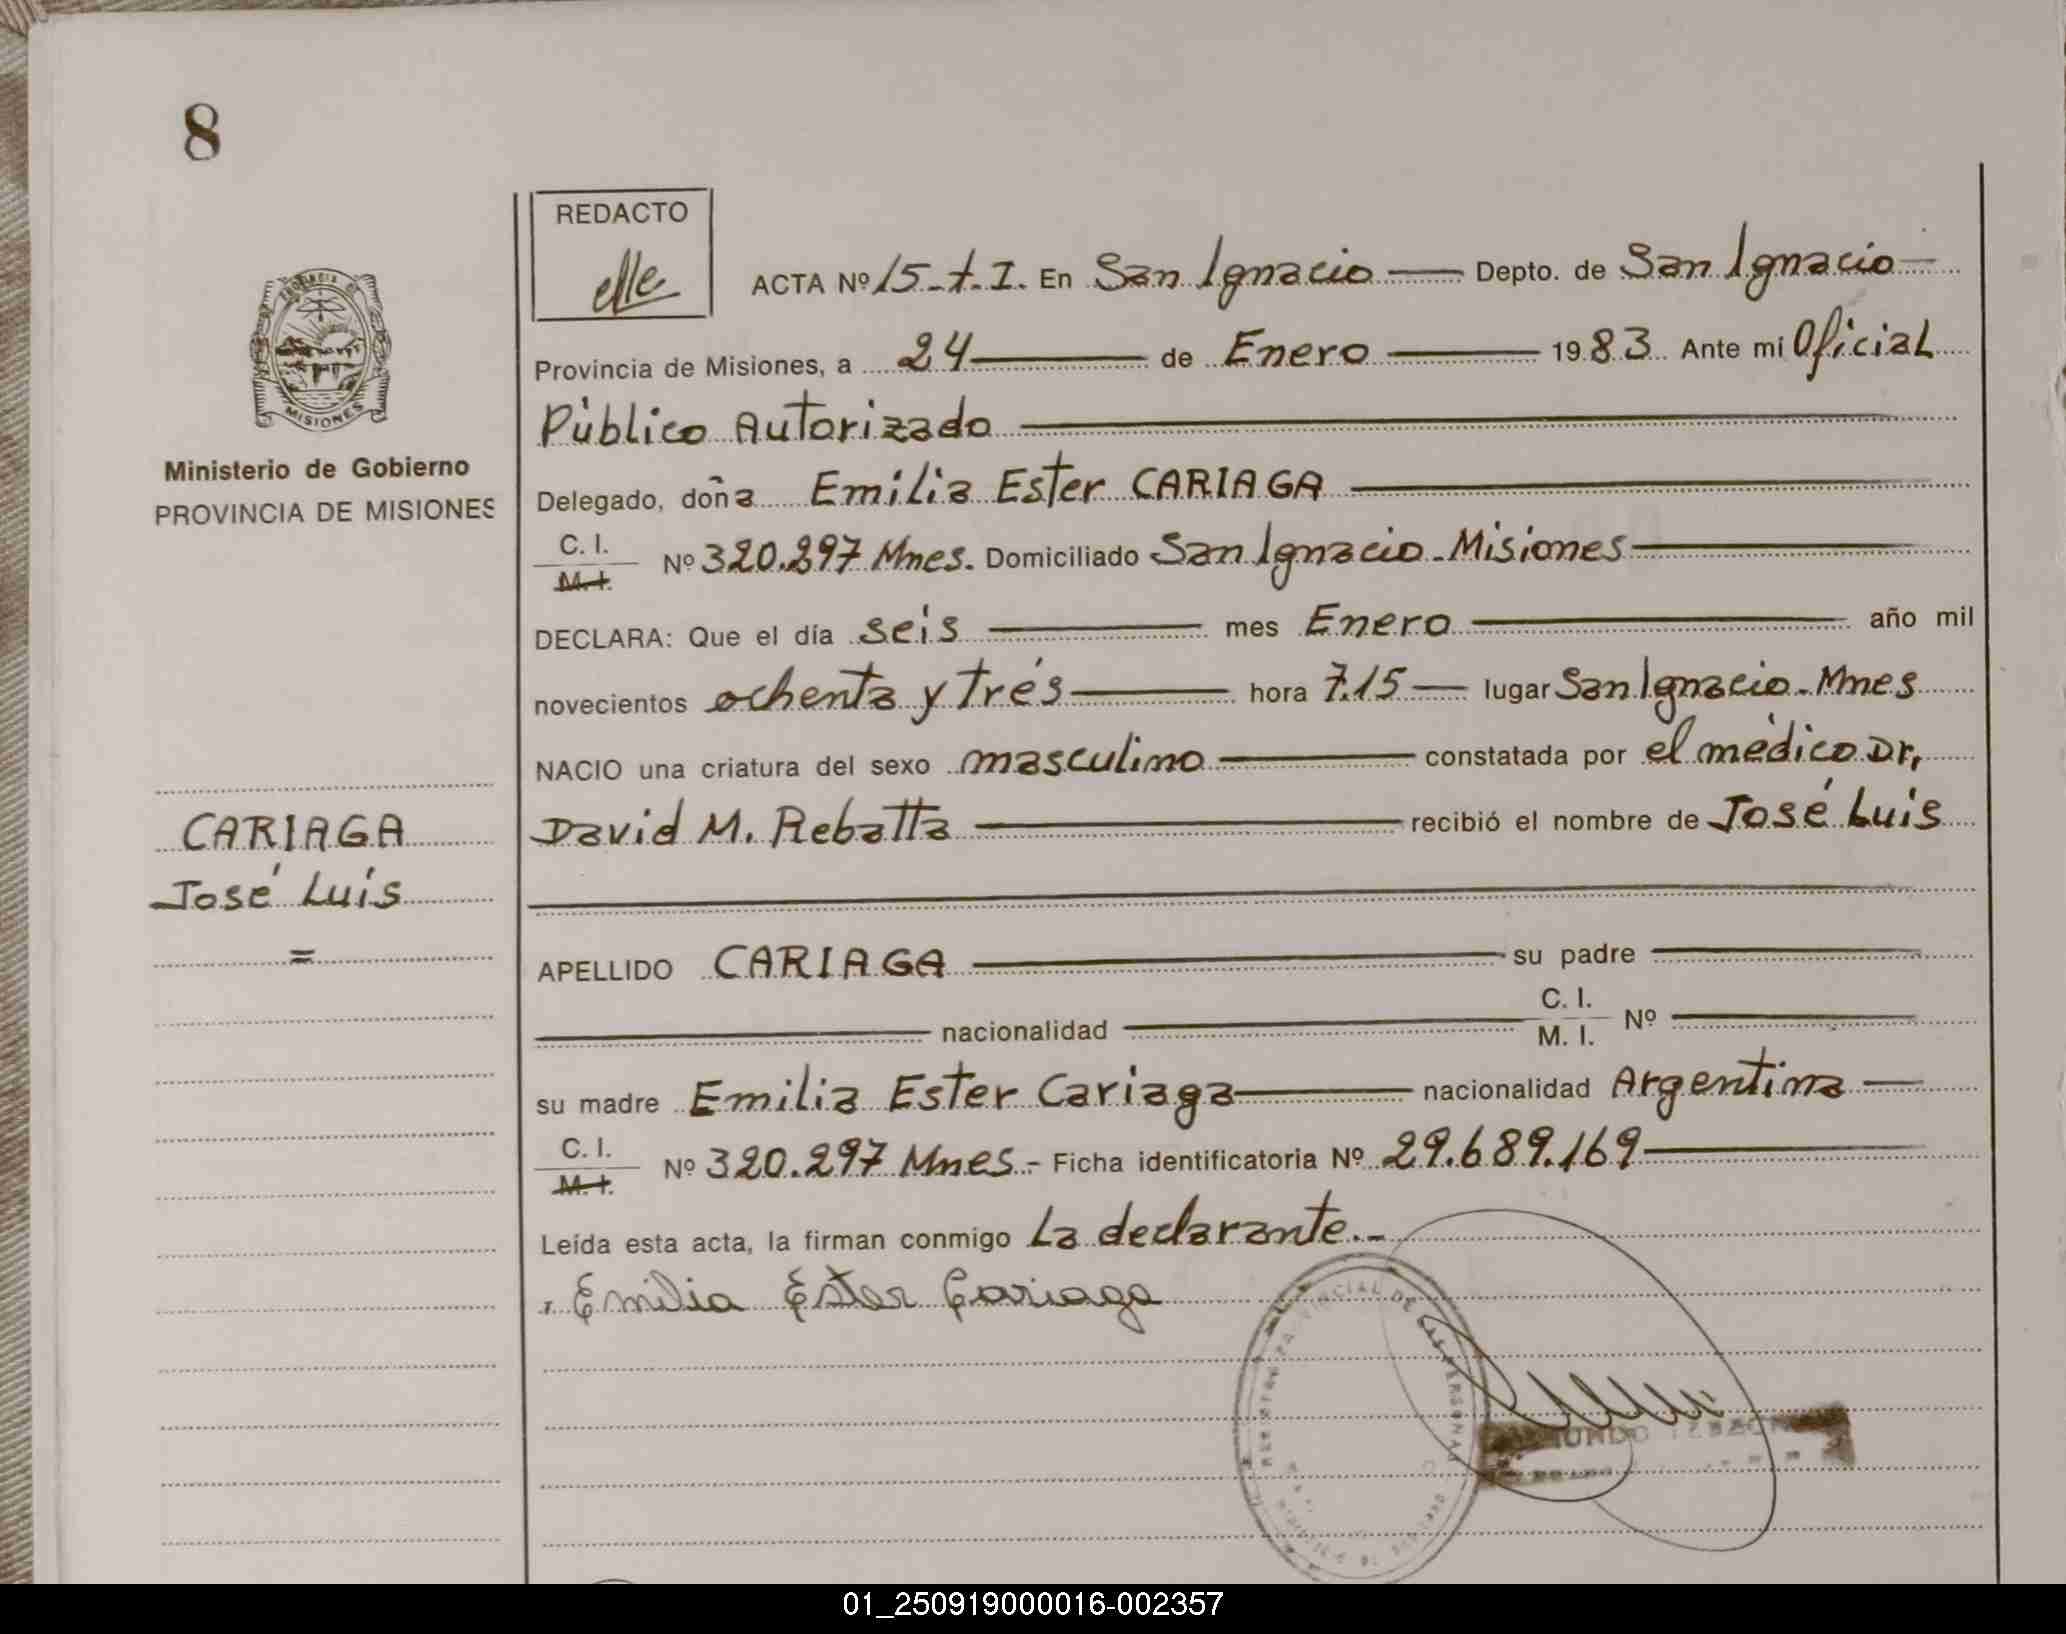 8
REDACTO
ACTA Nº 15-t.I. En San Ignacio Depto. de San Ignacio
Provincia de Misiones, a 24 de Enero 1983 Ante mí Oficial
Público Autorizado
MISIONES
Ministerio de Gobierno
PROVINCIA DE MISIONES
Delegado, doña Emilia Ester CARIAGA
C. I.
M. I. Nº 320.297 Mnes. Domiciliado San Ignacio - Misiones
DECLARA: Que el día seis mes Enero año mil
novecientos ochenta y trés hora 7.15 lugar San Ignacio - Mnes
NACIO una criatura del sexo masculino constatada por el médico Dr.
David M. Rebatta recibió el nombre de José Luis
CARIAGA
José Luis
=
APELLIDO CARIAGA su padre
nacionalidad C. I.
M. I. Nº
su madre Emilia Ester Cariaga nacionalidad Argentina
C. I.
M. I. Nº 320.297 Mnes.- Ficha identificatoria Nº 29.689.169
Leída esta acta, la firman conmigo La declarante.-
Emilia Ester Cariaga
PROVINCIAL DE LAS PERSONAS
01_250919000016-002357